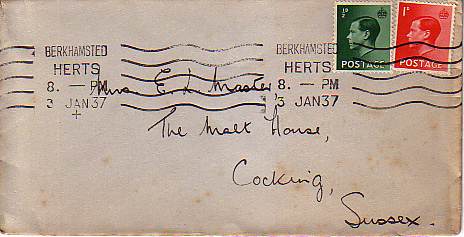 BERKHAMSTED
HERTS
8. — PM
3 JAN 37
BERKHAMSTED
HERTS
8. — PM
3 JAN 37
½ᴰ
POSTAGE
1ᴰ
POSTAGE
Mrs E. L. Master,
The Malt House,
Cocking,
Sussex.